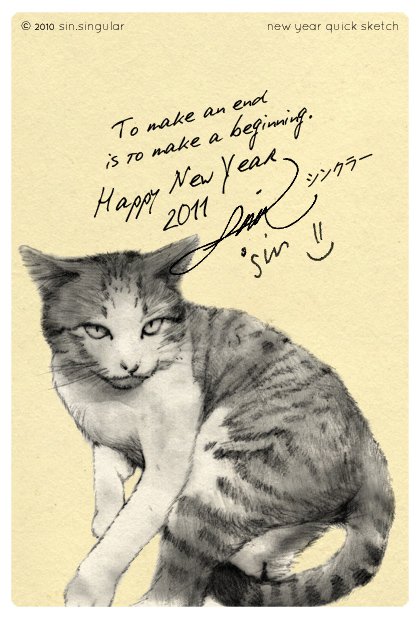 © 2010 sin.singular
new year quick sketch
To make an end
is to make a beginning.
Happy New Year
2011
シンクラー
sin